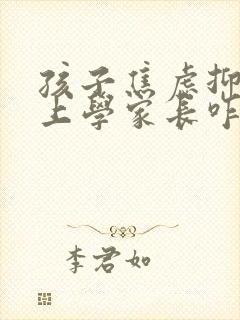 孩子焦虑抑
上學家長咋
李君如